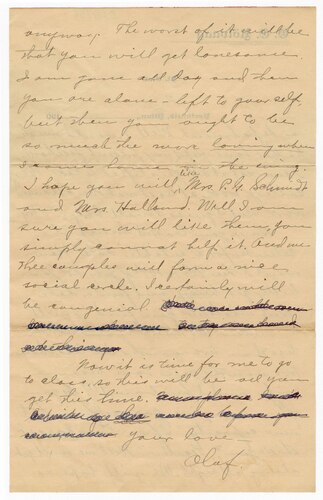 anyway. The worst of it will be
that you will get lonesome.
I am gone all day and then
you are alone - left to yourself,
but then you ought to be
so much the more loving when
I come home in the evening.
I hope you will like Mrs. P. G. Schmidt
and Mrs Holland. Well I am
sure you will like them, you
simply cannot help it. And we
three couples will form a nice
social circle. I certainly will
be congenial
Now it is time for me to go
to class, so this will be all you
get this time.
Your love -
Olaf.